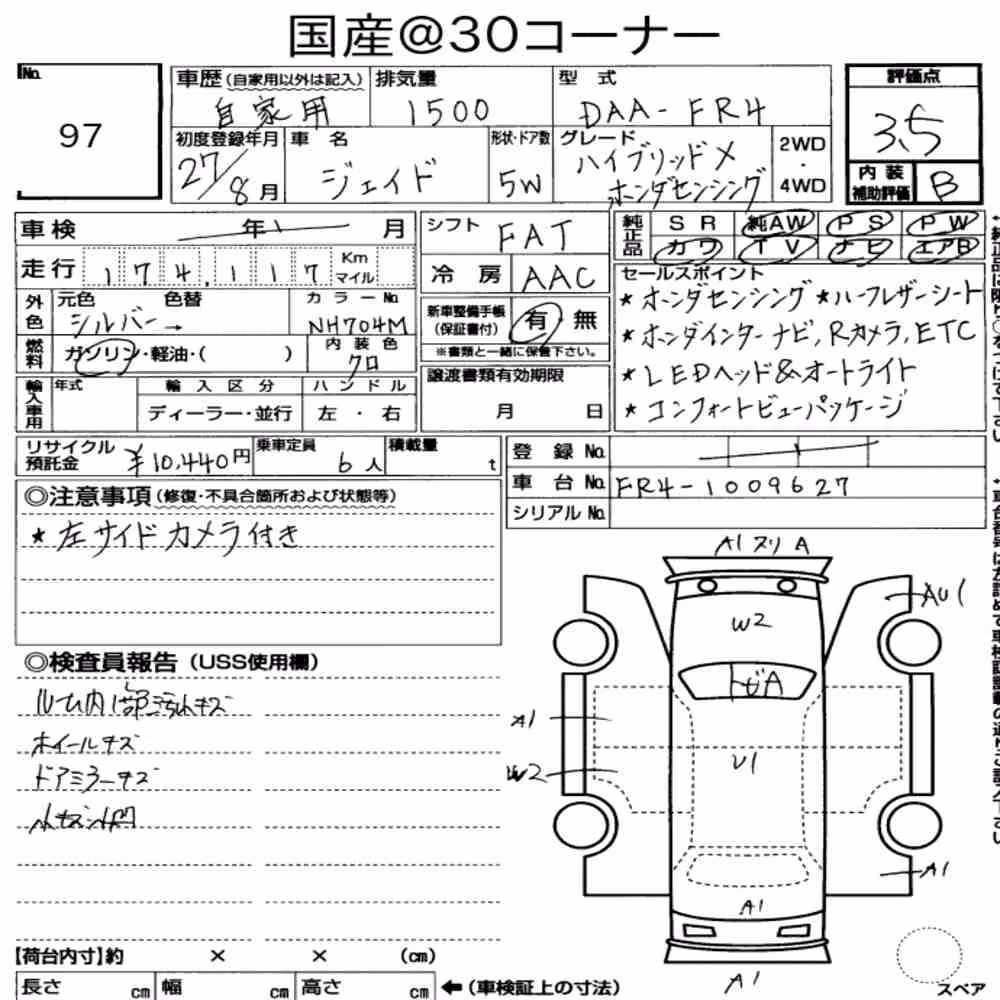 国産@30コーナー
No.
97
車歴(自家用以外は記入)
自家用
排気量
1500
型式
DAA-FR4
評価点
3.5
初度登録年月
27/8月
車名
ジェイド
形状・ドア数
5W
グレード
ハイブリッドX
ホンダセンシング
2WD
・
4WD
内装
補助評価
B
車検
年 月
走行
174,117
Km
マイル
シフト
FAT
冷房
AAC
純正品
SR 純AW PS PW
カワ TV ナビ エアB
外色
元色 色替
シルバー→
カラーNo.
NH704M
燃料
ガソリン・軽油・( )
内装色
クロ
新車整備手帳
(保証書付)
有 無
※書類と一緒に保管下さい。
輸入車用
年式
輸入区分
ディーラー・並行
ハンドル
左・右
譲渡書類有効期限
月 日
セールスポイント
★ホンダセンシング★ハーフレザーシート
★ホンダインターナビ,Rカメラ,ETC
★LEDヘッド&オートライト
★コンフォートビューパッケージ
リサイクル
預託金
¥10,440円
乗車定員
6人
積載量
t
登録No.
車台No.
FR4-1009627
シリアルNo.
◎注意事項(修復・不具合箇所および状態等)
★左サイドカメラ付き
◎検査員報告(USS使用欄)
ルーム内部汚れキズ
ホイールキズ
ドアミラーキズ
A1ヌリA
W2
AU1
トビA
A1
U1
W2
A1
A1
A1
スペア
【荷台内寸】約 × × (cm)
長さ cm 幅 cm 高さ cm
←(車検証上の寸法)